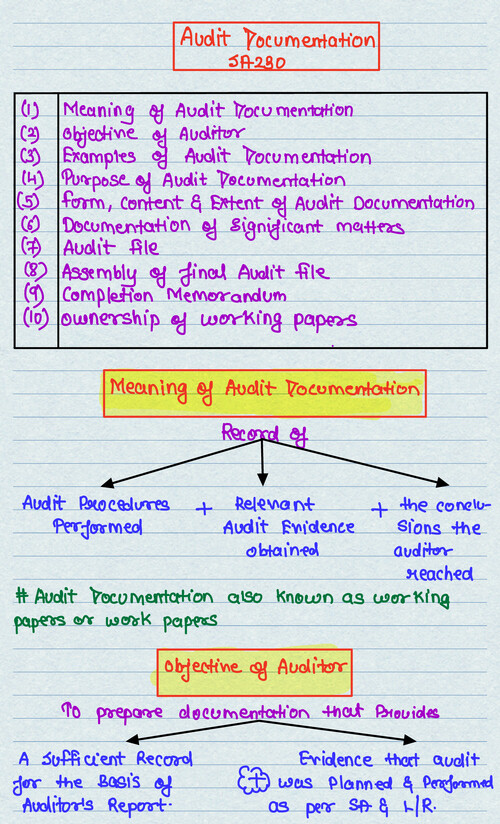 Audit Documentation
SA-230
(1) Meaning of Audit Documentation
(2) Objective of Auditor
(3) Examples of Audit Documentation
(4) Purpose of Audit Documentation
(5) Form, Content & Extent of Audit Documentation
(6) Documentation of Significant matters
(7) Audit File
(8) Assembly of Final Audit File
(9) Completion Memorandum
(10) Ownership of working papers
Meaning of Audit Documentation
Record of
Audit Procedures
Performed
+
Relevant
Audit Evidence
obtained
+
the conclu-
sions the
auditor
reached
# Audit Documentation also known as working
papers or work papers
Objective of Auditor
To prepare documentation that Provides
A Sufficient Record
for the Basis of
Auditor's Report.
+
Evidence that audit
was Planned & Performed
as per SA & L/R.